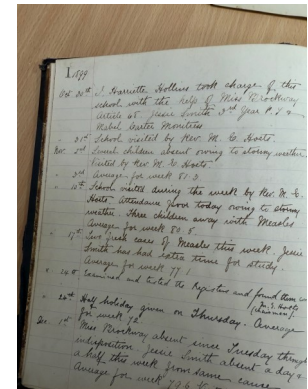 1899
Oct. 30th I Harriette Hollins took charge of this
school with the help of Miss Brockway
Article 68 Jessie Smith 3rd Year P.T. &
Mabel Carter Monitress
31st School visited by Rev. M. C. Hoets.
Nov. 2nd Several children absent owing to stormy weather.
Visited by Rev. M. C. Hoets.
" 3rd Average for week 81.3
" 10th School visited during the week by Rev. M. C.
Hoets. Attendance poor today owing to stormy
weather. Three children away with Measles
Average for week 80.8
" 17th Two fresh cases of Measles this week. Jessie
Smith has had extra time for study.
Average for week 77.1
Examined and tested the Registers and found them
" 24th Half holiday given on Thursday. Average
for week 72
Dec. 1st Miss Brockway absent since Tuesday through
indisposition Jessie Smith absent a day &
a half this week from same cause
Average for week 79.6